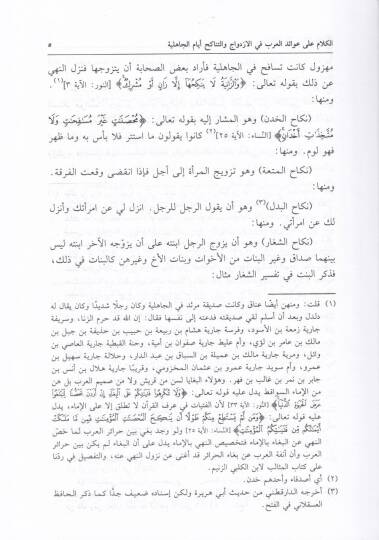 الكلام على عوائد العرب في الازدواج والتناكح أيام الجاهلية ٥
مهزول كانت تسافح في الجاهلية فأراد بعض الصحابة أن يتزوجها فنزل النهي
عن ذلك بقوله تعالى: ﴿وَٱلزَّانِيَةُ لَا يَنكِحُهَآ إِلَّا زَانٍ أَوْ مُشْرِكٌ﴾ [النور: الآية ٣](١).
ومنها:
(نكاح الخدن) وهو المشار إليه بقوله تعالى: ﴿مُحْصَنَٰتٍ غَيْرَ مُسَٰفِحَٰتٍ وَلَا
مُتَّخِذَٰتِ أَخْدَانٍ﴾ [النساء: الآية ٢٥](٢) كانوا يقولون ما استتر فلا بأس به وما ظهر
فهو لوم. ومنها:
(نكاح المتعة) وهو تزويج المرأة إلى أجل فإذا انقضى وقعت الفرقة.
ومنها:
(نكاح البدل)(٣) وهو أن يقول الرجل للرجل. انزل لي عن امرأتك وأنزل
لك عن امرأتي. ومنها:
(نكاح الشغار) وهو أن يزوج الرجل ابنته على أن يزوّجه الآخر ابنته ليس
بينهما صداق وغير البنات من الأخوات وبنات الأخ وغيرهن كالبنات في ذلك،
فذكر البنت في تفسير الشغار مثال:
(١) قلت: ومنهن أيضًا عناق وكانت صديقة مرثد في الجاهلية وكان رجلًا شديدًا وكان يقال له
دلدل وبعد أن أسلم لقي صديقته فدعته إلى نفسها فقال: إن الله قد حرم الزنا، وسريفة
جارية زمعة بن الأسود، وفرسة جارية هشام بن ربيعة بن حبيب بن حذيفة بن جبل بن
مالك بن عامر بن لؤي، وأم عليط جارية صفوان بن أمية، وحنة القبطية جارية العاصي بن
وائل، ومرية جارية مالك بن عميلة بن السباق بن عبد الدار، وحلالة جارية سهيل بن
عمرو، وأم سويد جارية عمرو بن عثمان المخزومي، وقريبا جارية هلال بن أنس بن
جابر بن نمر بن غالب بن فهر. وهؤلاء البغايا لسن من قريش ولا من صميم العرب بل هن
من الإماء السواقط يدل عليه قوله تعالى: ﴿وَلَا تُكْرِهُوا۟ فَتَيَٰتِكُمْ عَلَى ٱلْبِغَآءِ إِنْ أَرَدْنَ تَحَصُّنًا لِّتَبْتَغُوا۟
عَرَضَ ٱلْحَيَوٰةِ ٱلدُّنْيَا﴾ [النور: الآية ٣٣] لأن الفتيات في عرف القرآن لا تطلق إلا على الإماء، يدل
عليه قوله تعالى: ﴿وَمَن لَّمْ يَسْتَطِعْ مِنكُمْ طَوْلًا أَن يَنكِحَ ٱلْمُحْصَنَٰتِ ٱلْمُؤْمِنَٰتِ فَمِن مَّا مَلَكَتْ
أَيْمَٰنُكُم مِّن فَتَيَٰتِكُمُ ٱلْمُؤْمِنَٰتِ﴾ [النساء: الآية ٢٥] ولو وجد بغي بين حرائر العرب لما خصّ
النهي عن البغاء بالإماء فتخصيص النهي بالإماء يدل على أن البغاء لم يكن بين حرائر
العرب وأن أنفة العرب عن بغاء الحرائر قد أغنى عن نزول النهي عنه، والتفصيل في ردّنا
على كتاب المثالب لابن الكلبي الزنيم.
(٢) أي أصدقاء وأحدهم خدن.
(٣) أخرجه الدارقطني من حديث أبي هريرة ولكن إسناده ضعيف جدًّا كما ذكر الحافظ
العسقلاني في الفتح.